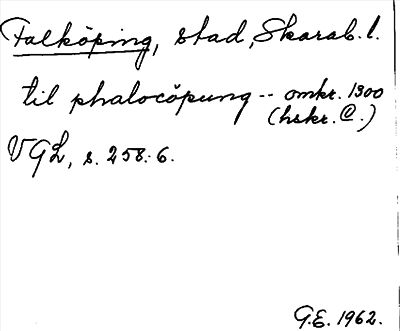 Falköping, stad, Skarab. l.
til phalocöpung -- omkr. 1300
(hskr. C.)
VGL, s. 258:6.
G.E. 1962.